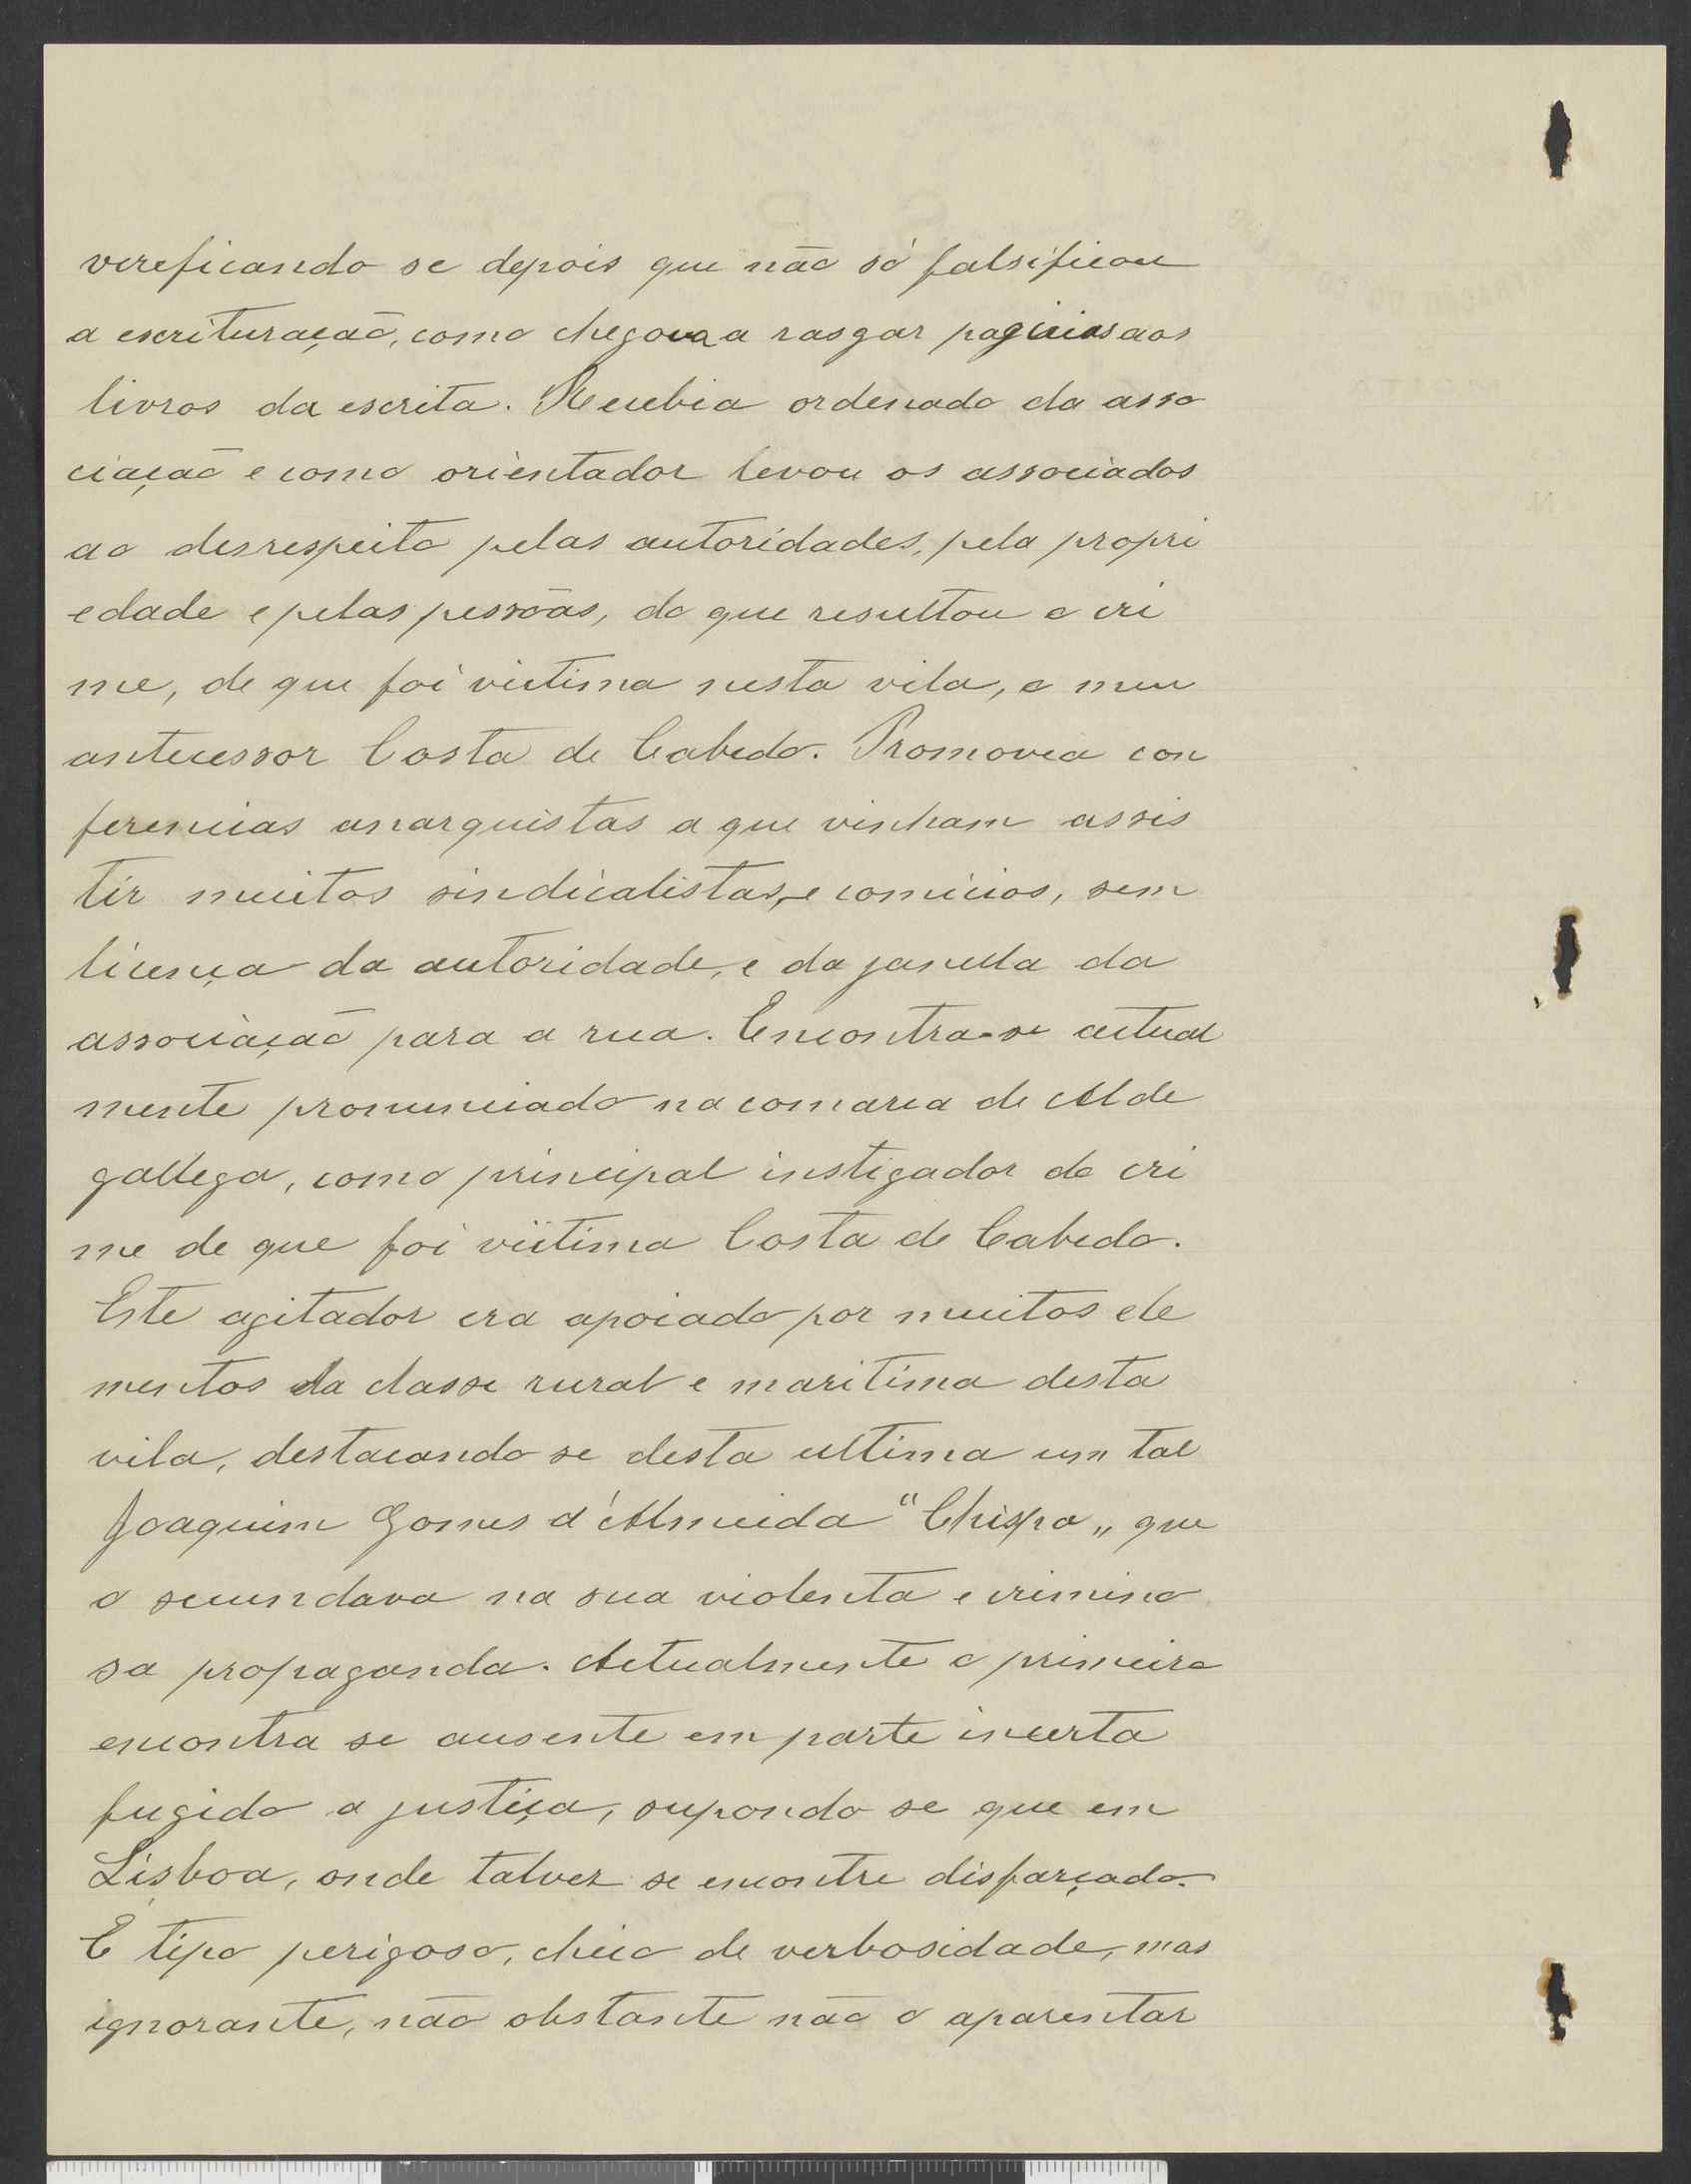 vereficando se depois que não só falsificou
a escrituração, como chegou a rasgar paginas aos
livros da escrita. Recebia ordenado da asso
ciação e como orientador levou os associados
ao desrespeito pelas autoridades, pela propri
edade e pelas pessôas, do que resultou o cri
me, de que foi victima nesta vila, o meu
antecessor Costa de Cabedo. Promovia con
ferencias anarquistas a que vinham assis
tir muitos sindicalistas, e comicios, sem
licença da autoridade, e da janella da
associação para a rua. Encontra-se actual
mente pronunciado na comarca de Alde
gallega, como principal instigador do cri
me de que foi victima Costa de Cabedo.
Este agitador era apoiado por muitos ele
mentos da classe rural e maritima desta
vila, destacando se desta ultima um tal
Joaquim Gomes d'Almeida "Chispa„ que
o secundava na sua violenta e crimino
sa propaganda. Actualmente o primeiro
encontra se ausente em parte incerta
fugido a justiça, supondo se que em
Lisboa, onde talvez se encontre disfarçado.
É tipo perigoso, cheio de verbosidade, mas
ignorante, não obstante não o aparentar